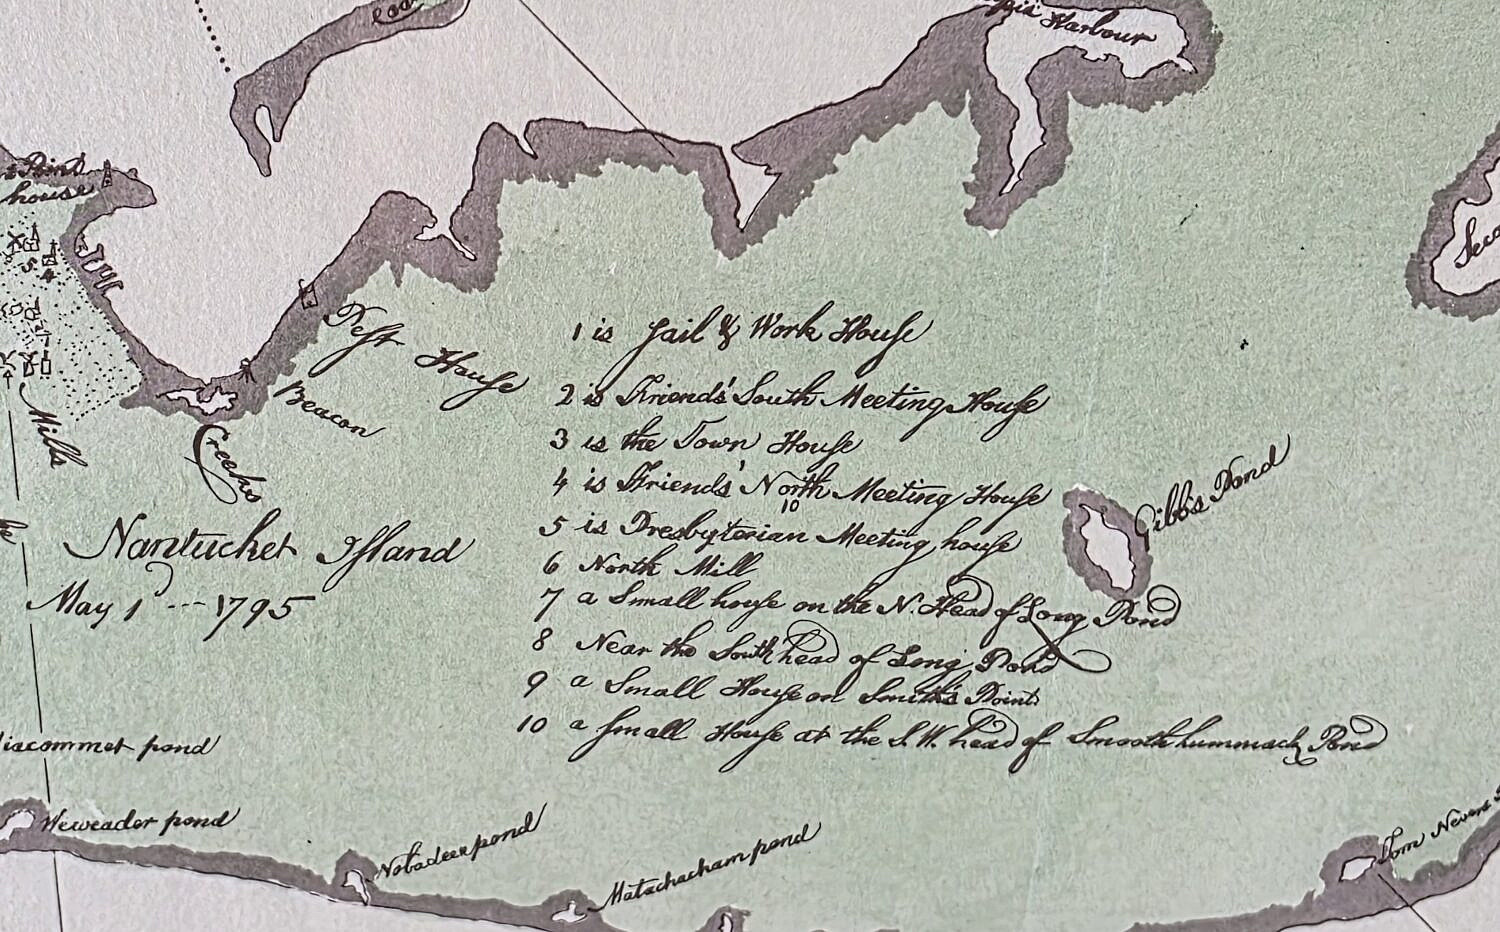 Harbour
Point
house
5
4
Mills
Pest House
Beacon
Creeks
1 is Jail & Work House
2 is Friends' South Meeting House
3 is the Town House
4 is Friends' North Meeting House
10
5 is Presbyterian Meeting house
6 North Mill
7 a Small house on the N. Head of Long Pond
8 Near the South head of Long Pond
9 a Small House on Smith's Point
10 a small House at the S.W. head of Smooth hummack Pond
Nantucket Island
May 1 --- 1795
Gibb's Pond
pond
Weweader pond
Nobadeer pond
Matachacham pond
Tom Nevers